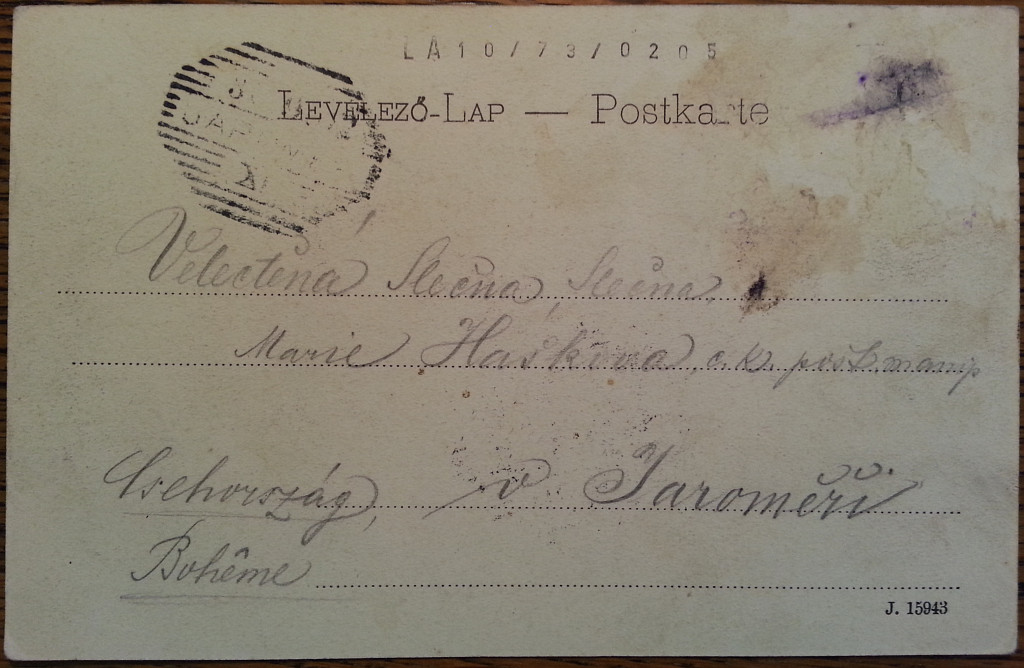 LA10/73/0205
Levelező-Lap — Postkarte
JAR
Velectěná Slečna, Slečna,
Marie Hašková, c. k. pošt. manip
Csehország, v Jaroměři
Bohême
J. 15943